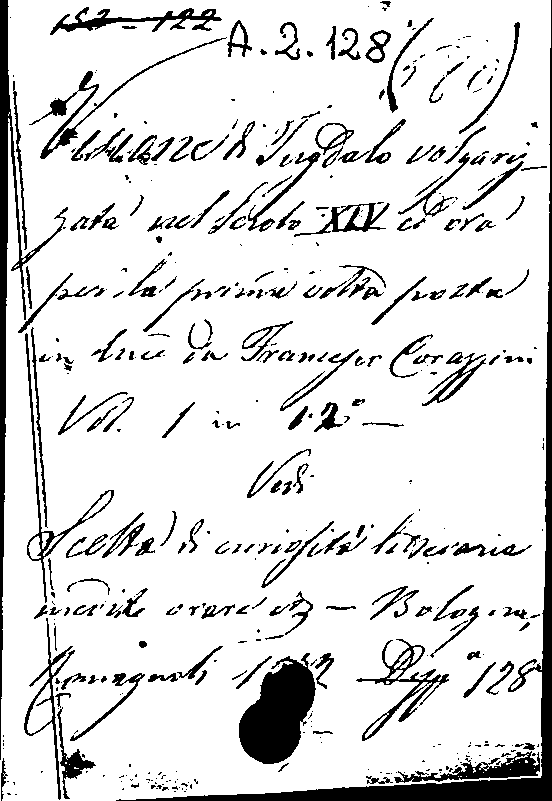 152-122
A.2.128 (580)
Visione di Tugdalo volgariz-
zata nel secolo XIV ed ora
per la prima volta posta
in luce da Francesco Corazzini
Vol. 1 in 12° —
Vedi
Scelta di curiosità letterarie
inedite o rare — Bologna,
Romagnoli Disp.ª 128ª